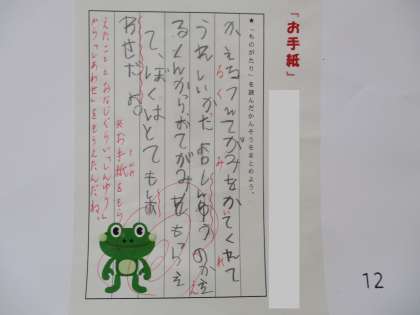 『お手紙』
★「ものがたり」を読んだかんそうをまとめよう。
かえるくんてがみをかいてくれて
うれしいかだよ。しんゆうのかえ
るくんからおてがみをもらえ
て、ぼくはとてもしあ
わせだよ。
※お手紙をもら
えたこととおなじぐらい「しんゆう」
から「しあわせ」をもらえたんだね。
12